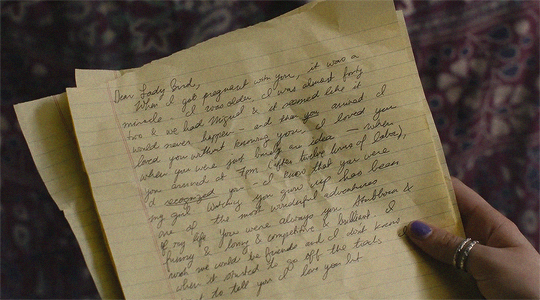 Dear Lady Bird,
When I got pregnant with you, it was a
miracle. I was older. I was almost forty
two & we had Miguel & it seemed like it
would never happen — and then you arrived. I
loved you without knowing you. I loved you
when you were just an idea — when
you arrived at 7pm (after twelve hours of labor),
I recognized you — I knew that you were
my girl. Watching you grow up has been
one of the most wonderful adventures
of my life. You were always you. Stubborn &
funny & loving & competitive & brilliant. I
wish we could be friends and I don't know
when it started to go off the tracks
to tell you I love you but